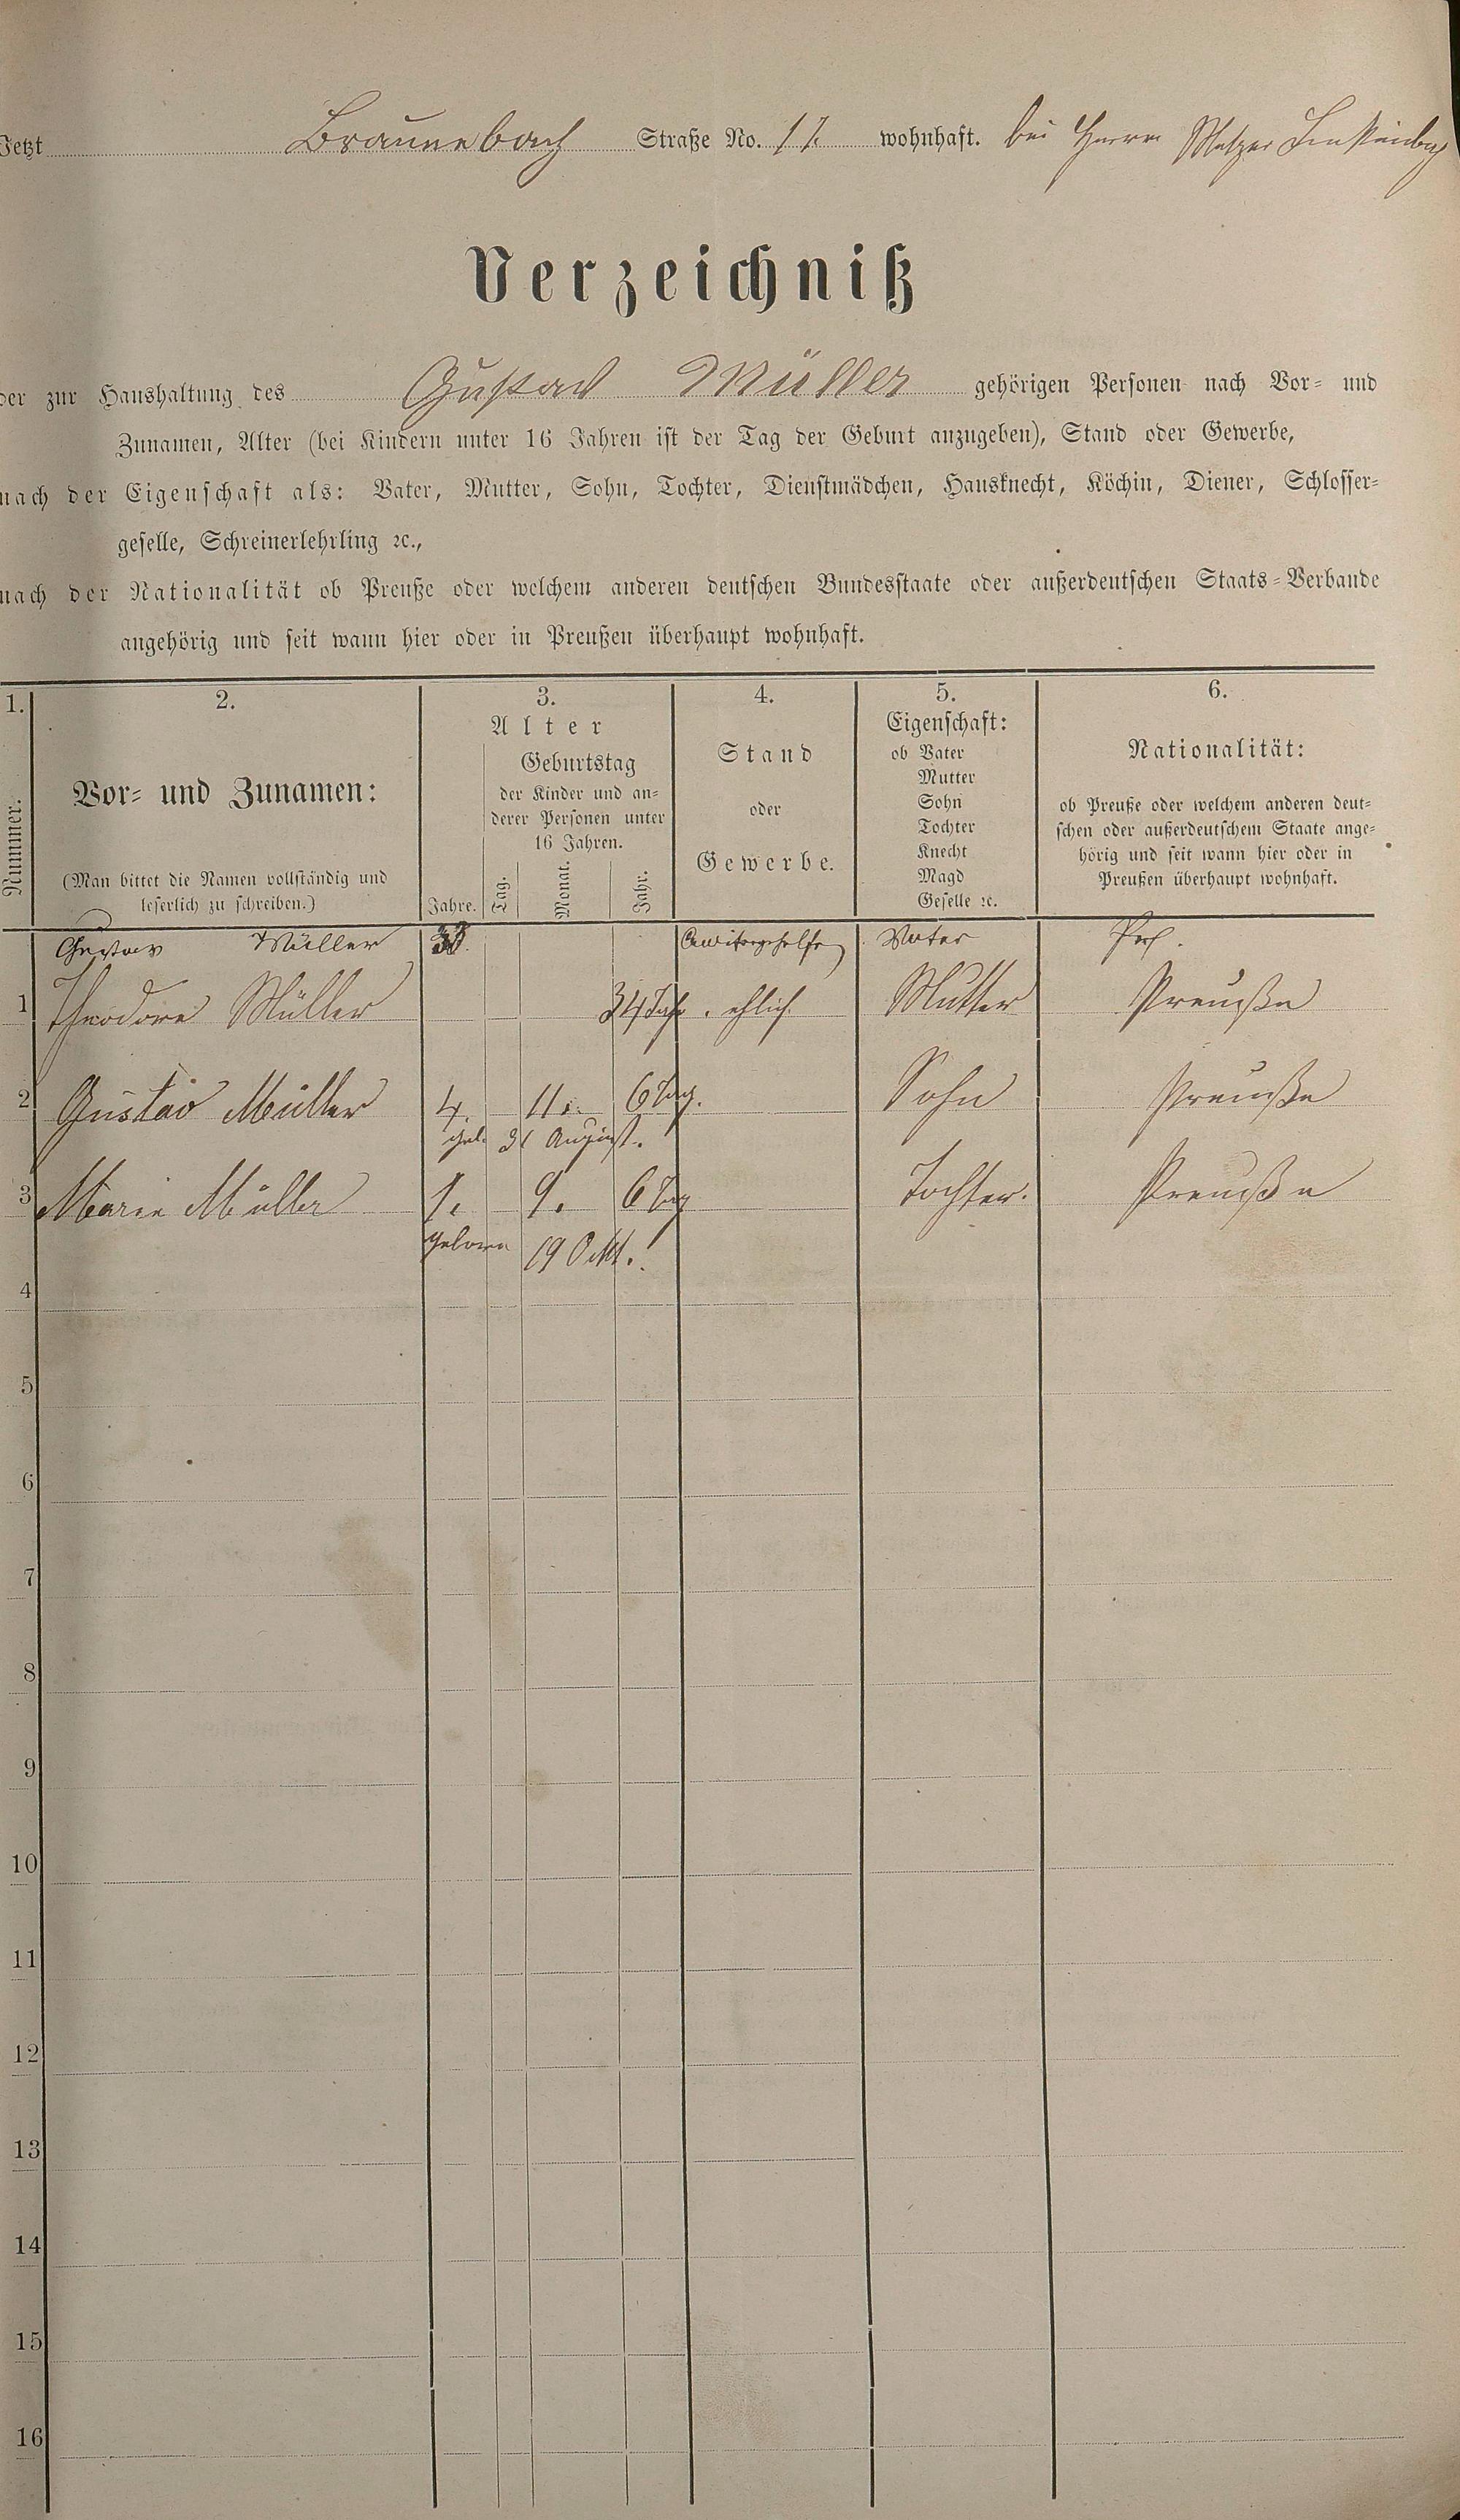 Jetzt Braunebach Straße No. 17. wohnhaft. bei Herrn Metzger
Verzeichniß
der zur Haushaltung des Gustav Müller gehörigen Personen nach Vor- und
Zunamen, Alter (bei Kindern unter 16 Jahren ist der Tag der Geburt anzugeben), Stand oder Gewerbe,
nach der Eigenschaft als: Vater, Mutter, Sohn, Tochter, Dienstmädchen, Hausknecht, Köchin, Diener, Schlosser-
geselle, Schreinerlehrling ꝛc.,
nach der Nationalität ob Preuße oder welchem anderen deutschen Bundesstaate oder außerdeutschen Staats-Verbande
angehörig und seit wann hier oder in Preußen überhaupt wohnhaft.
1. 2. 3. 4. 5. 6.
Nummer.
Vor- und Zunamen:
(Man bittet die Namen vollständig und
leserlich zu schreiben.)
Alter
Jahre.
Geburtstag
der Kinder und an-
derer Personen unter
16 Jahren.
Tag. Monat. Jahr.
Stand
oder
Gewerbe.
Eigenschaft:
ob Vater
Mutter
Sohn
Tochter
Knecht
Magd
Geselle ꝛc.
Nationalität:
ob Preuße oder welchem anderen deut-
schen oder außerdeutschem Staate ange-
hörig und seit wann hier oder in
Preußen überhaupt wohnhaft.
Gustav Müller Vater
1 Theodore Müller 34 Jahr. ehlich. Mutter Preuße
2 Gustav Müller 4. 11. 6 Tag. Sohn Preuße
geb. 31 August.
3 Marie Müller 1. 9. 6 Tag Tochter. Preuße
geboren 19 Okt.
4
5
6
7
8
9
10
11
12
13
14
15
16